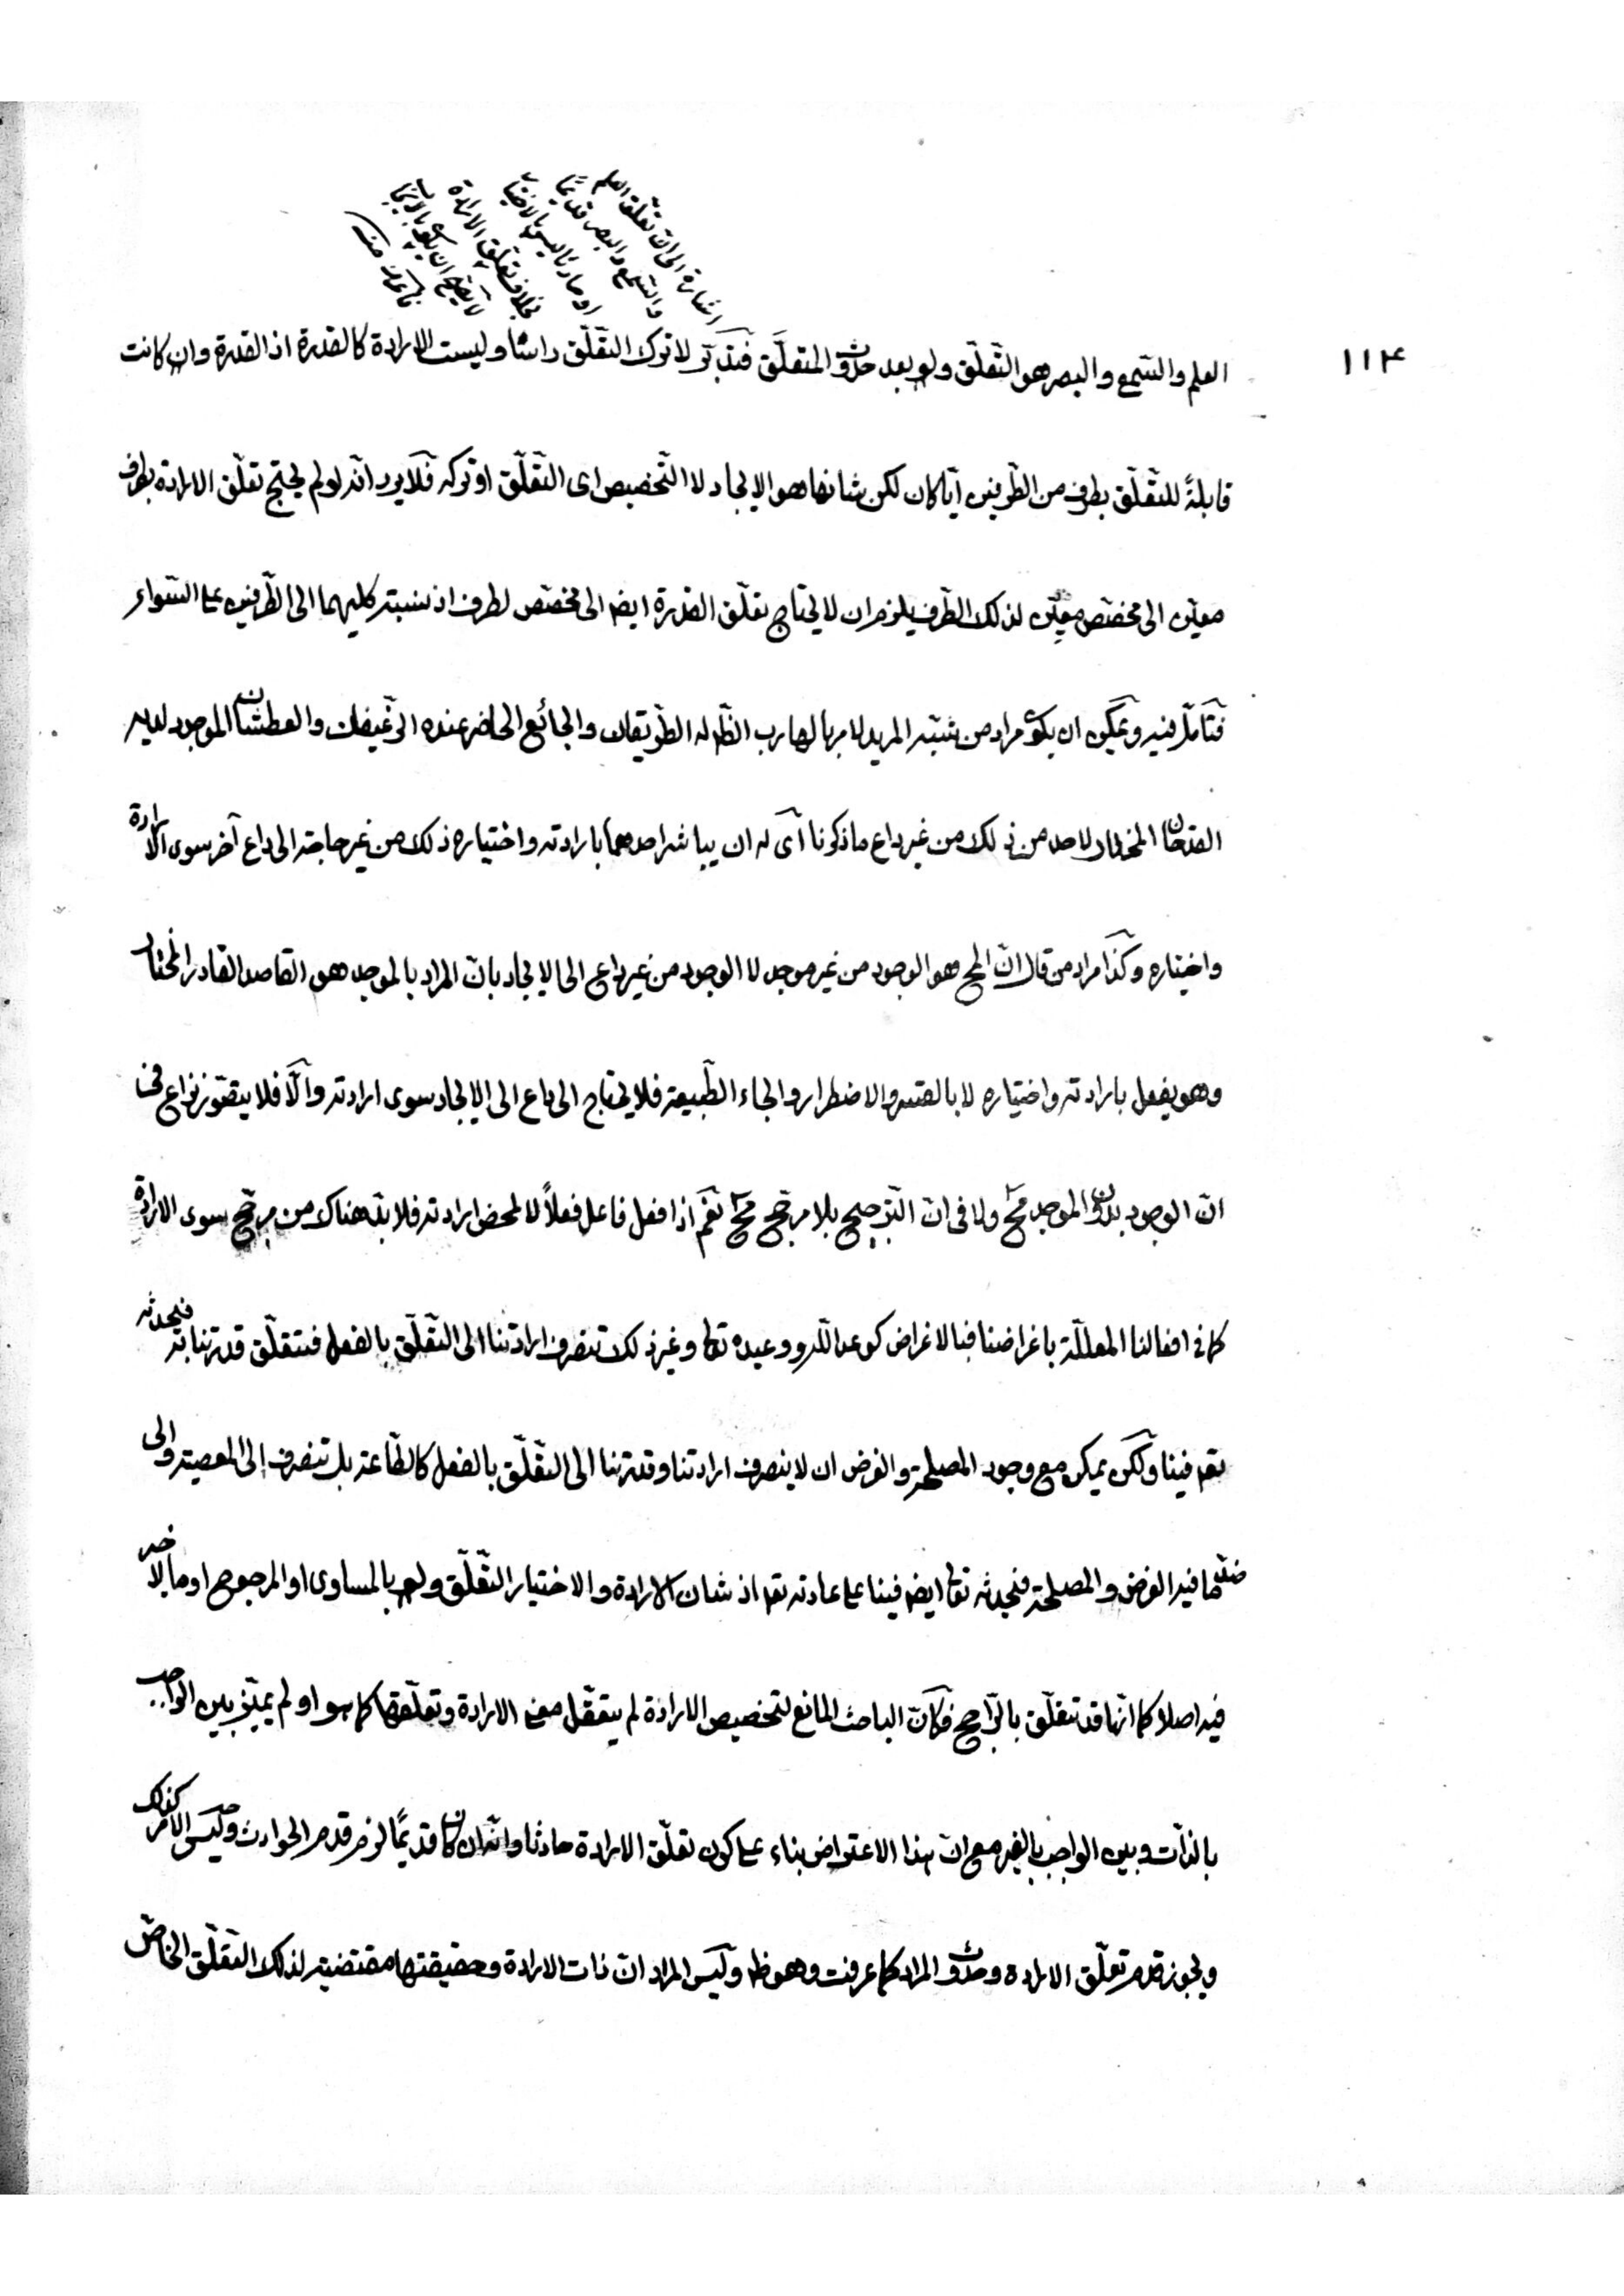 ١١٤
اشارة الى ان تعلّق العلم
والسّمع والبصر قديمًا
او حادثا ليس بالاختيار
بخلاف تعلّق الارادة
لا يصحّ ان يكون بالايجاب
فاعرف منه
العلم والسّمع والبصر هو التّعلّق ولو بعد حدوث المتعلّق فتدبّر لا ترك التّعلّق راسًا وليست الارادة كالقدرة اذ القدرة وان كانت
قابلةً للتّعلّق بطرف من الطّرفين ايّا كان لكن شانها هو الايجاد لا التّخصيص اى التّعلّق او تركه فلا يرد انّه لو لم يحتج تعلّق الارادة بطرف
معيّن الى مخصّص معيّن لذلك الطّرف يلزم ان لا يحتاج تعلّق القدرة ايضا الى مخصّص لطرف اذ نسبة كليهما الى الطّرفين على السّواء
فتأمّل فيه ويمكن ان يكون مراد من شبّه المريد لامر بالهارب الظّاهر له الطّريقان والجائع الحاضر عنده الرّغيفان والعطشان الموجود لديه
القدحان المختار لاحد من ذلك من غير داع ما ذكرنا اى له ان يباشر احدهما بارادته واختياره ذلك من غير حاجة الى داع آخر سوى الارادة
واختياره وكذا مراد من قال انّ المح هو الوجود من غير موجد لا الوجود من غير داع الى الايجاد بانّ المراد بالموجد هو القاصد القادر المختار
وهو يفعل بارادته واختياره لا بالقسر والاضطرار والجاء الطّبيعة فلا يحتاج الى داع الى الايجاد سوى ارادته والّا فلا يتصوّر نزاع فى
انّ الوجود بدون الموجد مح ولا فى انّ التّرجيح بلا مرجّح مح نعم اذا فعل فاعل فعلاً لا لمحض ارادته فلا بدّ هناك من مرجّح سوى الارادة
كما فى افعالنا المعلّلة باغراضنا فبالاغراض كوعد اللّه ووعيده تعا وغير ذلك تنصرف ارادتنا الى التّعلّق بالفعل فتتعلّق قدرتنا به فيحدثه
تعا فينا ولكن يمكن مع وجود المصلحة والغرض ان لا ينصرف ارادتنا وقدرتنا الى التّعلّق بالفعل كالطّاعة بل تنصرف الى المعصية والى
ضدّ ما فيه الغرض والمصلحة فيحدثه تعا ايضا فينا على عادته تعا اذ شان الارادة والاختيار التّعلّق ولو بالمساوى او المرجوح او ما لا خير
فيه اصلا كما انّها قد تتعلّق بالرّاجح فكانّ الباحث المانع لتخصيص الارادة لم يتعقّل معنى الارادة وتعلّقها كما هو او لم يميّز بين الواجب
بالذّات وبين الواجب بالغير مع انّ هذا الاعتراض بناء على كون تعلّق الارادة حادثا وانّه ان كان قديمًا لزم قدم الحوادث وليس الامر كذلك
ويجوز قدم تعلّق الارادة وحدوث المراد كما عرفت وهو ظ وليس المراد انّ ذات الارادة وحقيقتها مقتضية لذلك التّعلّق الخاصّ